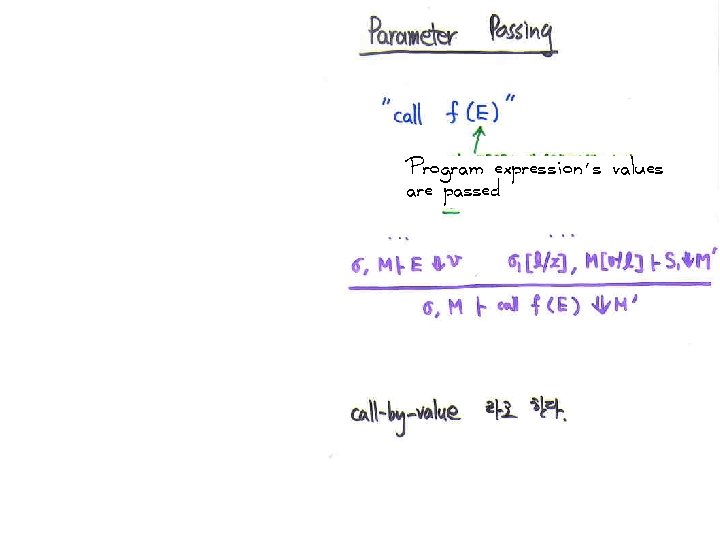 Parameter Passing
"call f(E)"
Program expression's values
are passed
... ...
σ, M ⊢ E ⇓ v σ₁[l/x], M[v/l] ⊢ S₁ ⇓ M'
σ, M ⊢ call f(E) ⇓ M'
call-by-value 라고 한다.